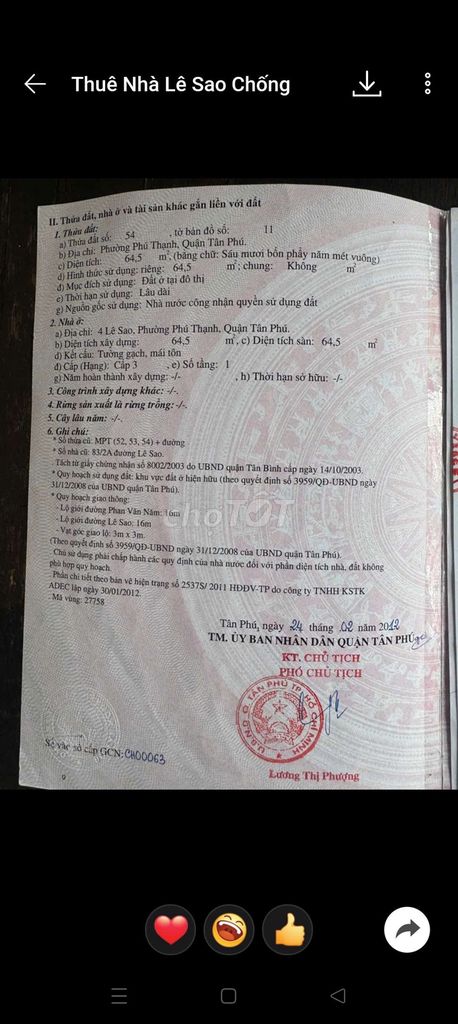 Thuê Nhà Lê Sao Chống
II. Thửa đất, nhà ở và tài sản khác gắn liền với đất
1. Thửa đất:
a) Thửa đất số: 54 , tờ bản đồ số: 11
b) Địa chỉ: Phường Phú Thạnh, Quận Tân Phú.
c) Diện tích: 64,5 m², (bằng chữ: Sáu mươi bốn phẩy năm mét vuông)
d) Hình thức sử dụng: riêng: 64,5 m²; chung: Không m²
đ) Mục đích sử dụng: Đất ở tại đô thị
e) Thời hạn sử dụng: Lâu dài
g) Nguồn gốc sử dụng: Nhà nước công nhận quyền sử dụng đất
2. Nhà ở:
a) Địa chỉ: 4 Lê Sao, Phường Phú Thạnh, Quận Tân Phú.
b) Diện tích xây dựng: 64,5 m², c) Diện tích sàn: 64,5 m²
d) Kết cấu: Tường gạch, mái tôn
đ) Cấp (Hạng): Cấp 3 , e) Số tầng: 1
g) Năm hoàn thành xây dựng: -/- , h) Thời hạn sở hữu: -/-
3. Công trình xây dựng khác: -/-.
4. Rừng sản xuất là rừng trồng: -/-.
5. Cây lâu năm: -/-.
6. Ghi chú:
* Số thửa cũ: MPT (52, 53, 54) + đường
* Số nhà cũ: 83/2A đường Lê Sao.
- Tách từ giấy chứng nhận số 8002/2003 do UBND quận Tân Bình cấp ngày 14/10/2003.
* Quy hoạch sử dụng đất: khu vực đất ở hiện hữu (theo quyết định số 3959/QĐ-UBND ngày
31/12/2008 của UBND quận Tân Phú).
* Quy hoạch giao thông:
- Lộ giới đường Phan Văn Năm: 16m
- Lộ giới đường Lê Sao: 16m
- Vạt góc giao lộ: 3m x 3m.
(Theo quyết định số 3959/QĐ-UBND ngày 31/12/2008 của UBND quận Tân Phú).
- Chủ sử dụng phải chấp hành các quy định của nhà nước đối với phần diện tích nhà, đất không
phù hợp quy hoạch.
- Phần chi tiết theo bản vẽ hiện trạng số 2537S/ 2011 HĐĐV-TP do công ty TNHH KSTK
ADEC lập ngày 30/01/2012.
- Mã vùng: 27758
choTỐT
Tân Phú, ngày 24 tháng 02 năm 2012
TM. ỦY BAN NHÂN DÂN QUẬN TÂN PHÚ
KT. CHỦ TỊCH
PHÓ CHỦ TỊCH
U.B.N.D Q. TÂN PHÚ T.P. HỒ CHÍ MINH
Số vào sổ cấp GCN: CH00063
Lương Thị Phượng